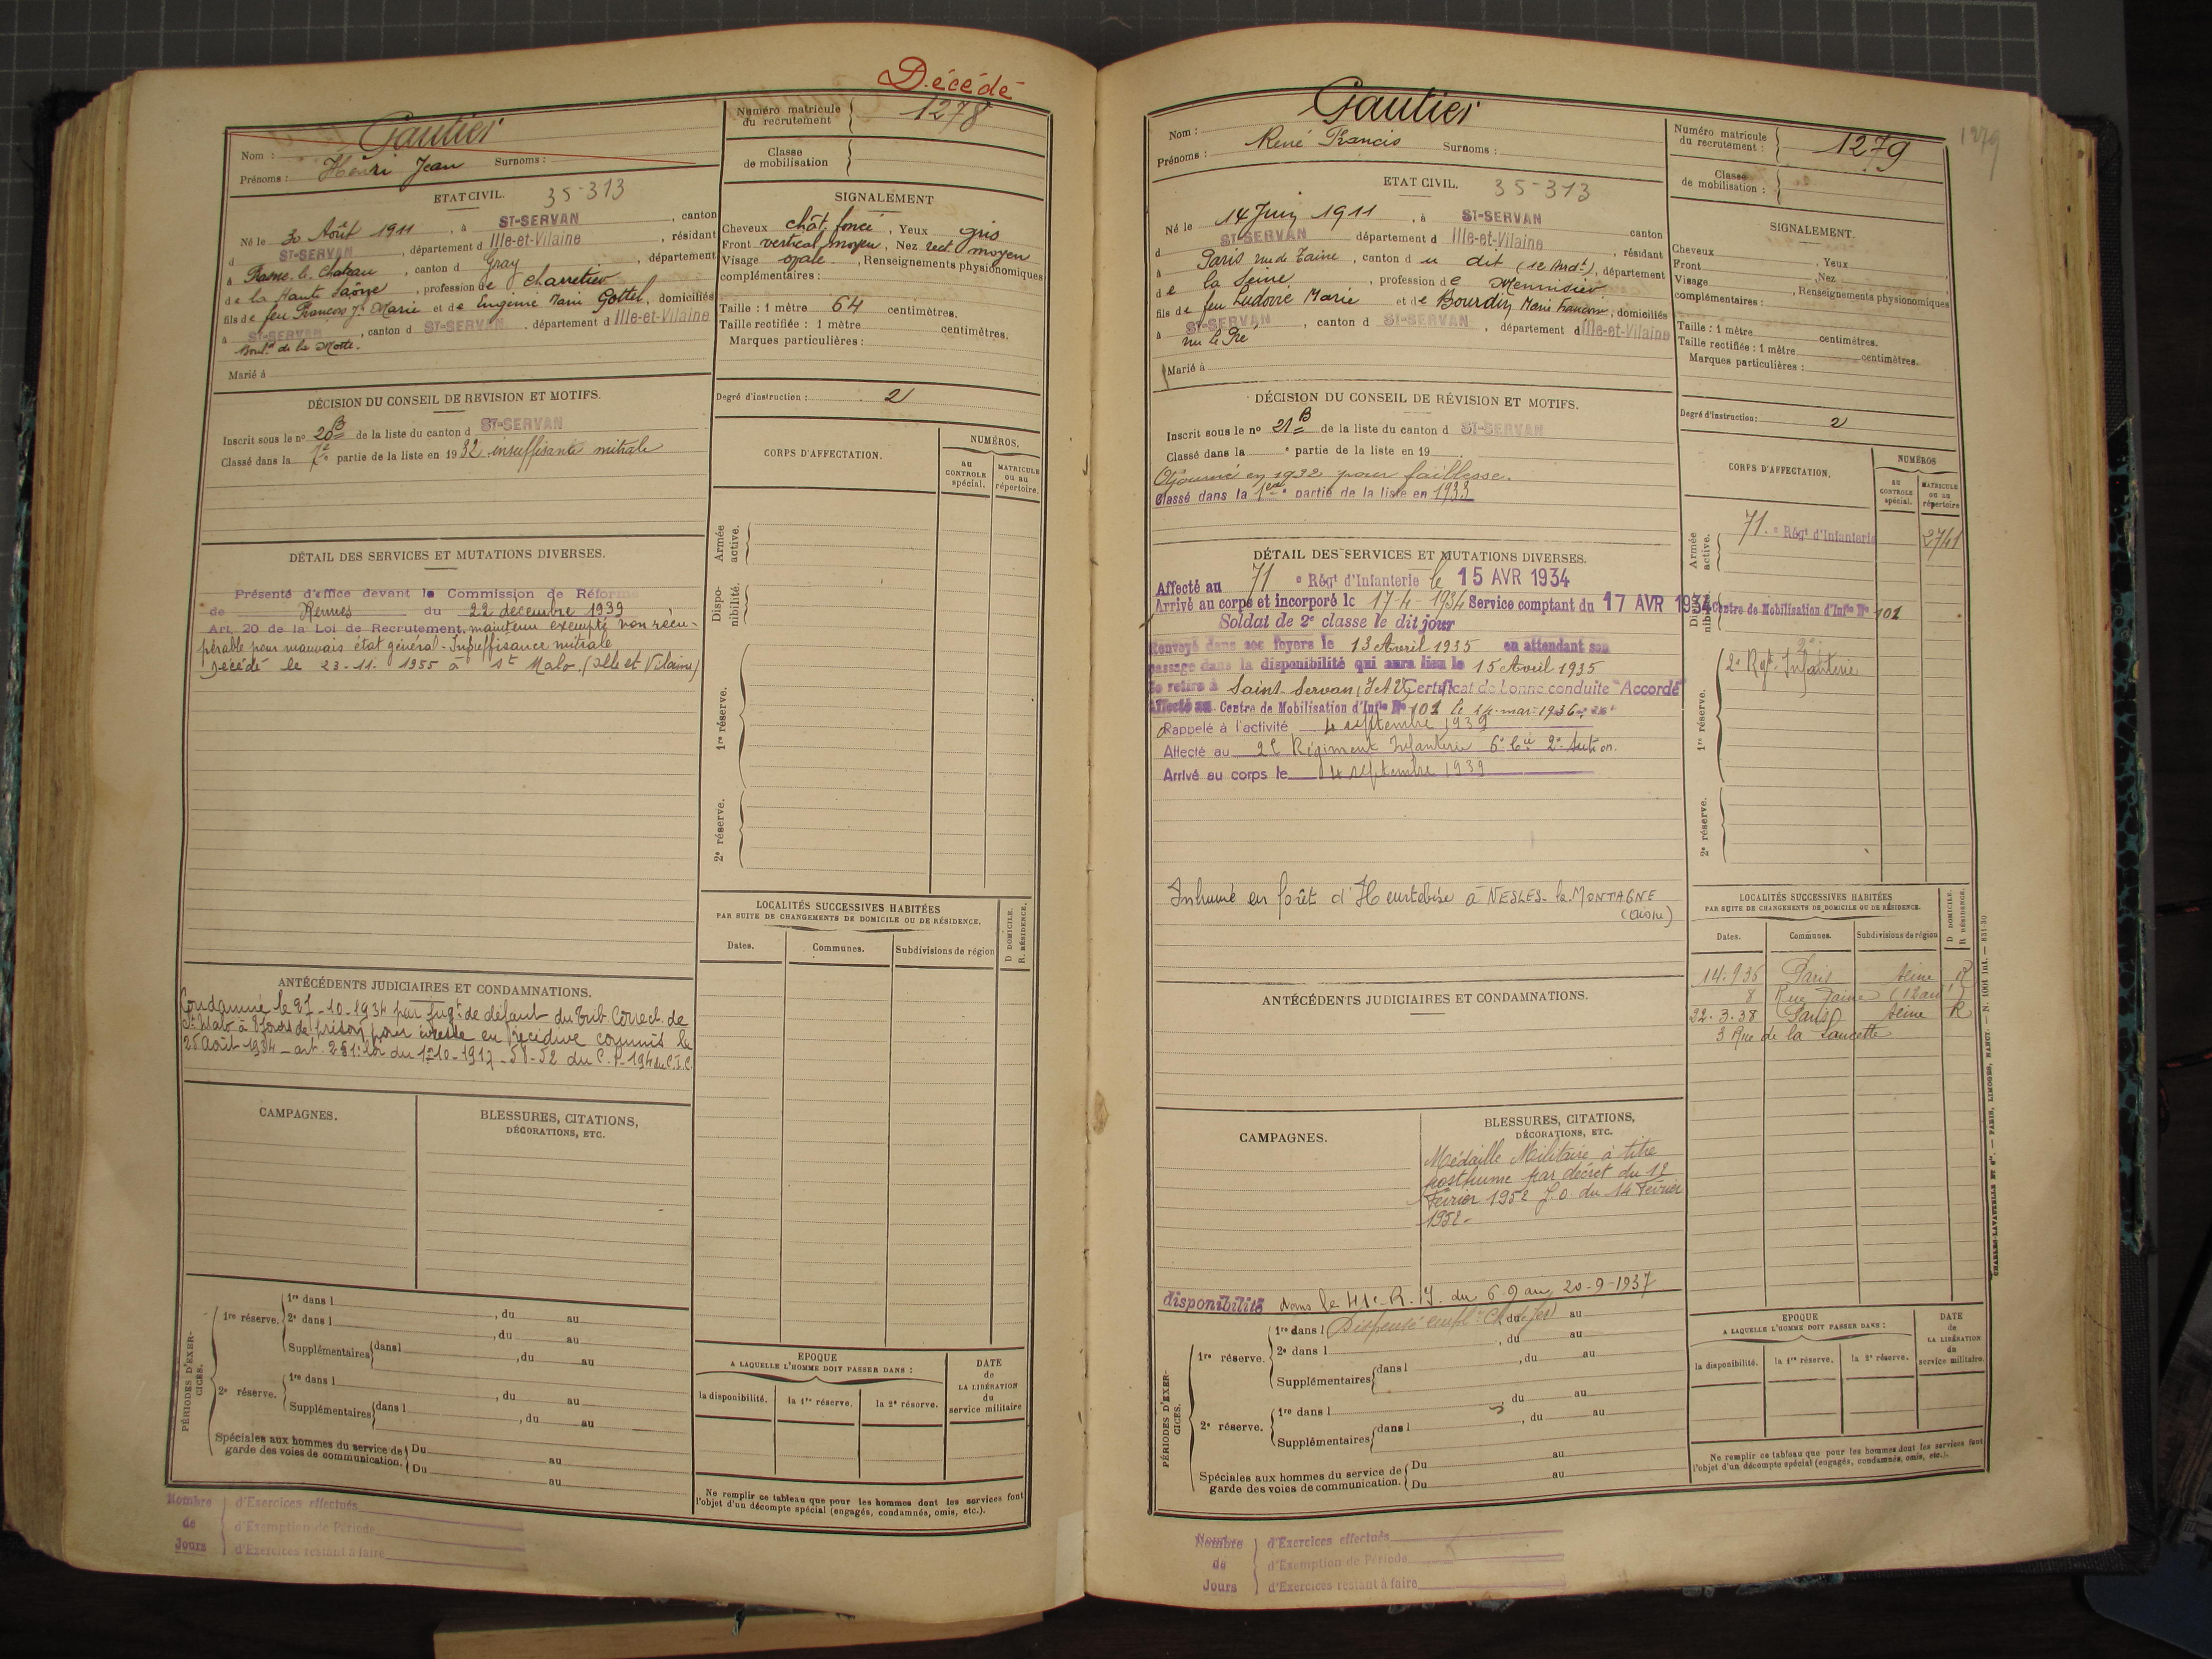 Décédé
Gautier
Nom :
Prénoms : Henri Jean Surnoms :
Numéro matricule du recrutement 1278
Classe de mobilisation
ETAT CIVIL. 35-313
Né le 30 Août 1911, à ST-SERVAN, canton
d ST-SERVAN, département d Ille-et-Vilaine, résidant
à -le-Chateau, canton d Gray, département
de la Haute Saône, profession de Charretier
fils de feu François Jh Marie et de Eugénie Marie Gottel, domiciliés
à ST-SERVAN, canton d ST-SERVAN, département d Ille-et-Vilaine
Boulrd de la Motte.
Marié à
SIGNALEMENT
Cheveux chât. foncé, Yeux gris
Front vertical moyen, Nez rect. moyen
Visage ovale, Renseignements physionomiques
complémentaires :
Taille : 1 mètre 64 centimètres.
Taille rectifiée : 1 mètre centimètres.
Marques particulières :
Degré d'instruction : 2
DÉCISION DU CONSEIL DE REVISION ET MOTIFS.
Inscrit sous le nº 20 B de la liste du canton d ST-SERVAN
Classé dans la partie de la liste en 1932 insuffisante mitrale
CORPS D'AFFECTATION.
NUMÉROS.
au CONTROLE spécial.
MATRICULE ou au répertoire.
Armée active.
Disponibilité.
1re réserve.
2e réserve.
DÉTAIL DES SERVICES ET MUTATIONS DIVERSES.
Présenté d'office devant la Commission de Réforme
de Rennes du 22 décembre 1939
Art. 20 de la Loi de Recrutement. maintenu exempté non récu-
pérable pour mauvais état général - Insuffisance mitrale
Décédé le 23-11-1955 à St Malo (Ille et Vilaine)
LOCALITÉS SUCCESSIVES HABITÉES
PAR SUITE DE CHANGEMENTS DE DOMICILE OU DE RÉSIDENCE.
Dates. Communes. Subdivisions de région
D DOMICILE.
R. RÉSIDENCE.
ANTÉCÉDENTS JUDICIAIRES ET CONDAMNATIONS.
Condamné le 27-10-1934 par jugt de défaut du Trib. Correct. de
St Malo à 8 jours de prison pour ivresse en récidive commis le
25 Août 1934 - art. 2 loi du 1-10-1917 - 58-52 du C.P. 194 du C.I.C.
CAMPAGNES.
BLESSURES, CITATIONS,
DÉCORATIONS, ETC.
PÉRIODES D'EXERCICES.
1re réserve. 1re dans l , du au
2e dans l , du au
Supplémentaires dans l , du au
2e réserve. 1re dans l , du au
Supplémentaires dans l , du au
Spéciales aux hommes du service de garde des voies de communication. Du au
Du au
EPOQUE
A LAQUELLE L'HOMME DOIT PASSER DANS :
la disponibilité. la 1re réserve. la 2e réserve.
DATE de LA LIBÉRATION du service militaire
Ne remplir ce tableau que pour les hommes dont les services font
l'objet d'un décompte spécial (engagés, condamnés, omis, etc.).
Nombre de Jours
d'Exercices effectués
d'Exemption de Période
d'Exercices restant à faire
Gautier
Nom :
Prénoms : René Francis Surnoms :
Numéro matricule du recrutement : 1279
1279
Classe de mobilisation :
ETAT CIVIL. 35-313
Né le 14 Juin 1911, à ST-SERVAN canton
d ST-SERVAN département d Ille-et-Vilaine, résidant
à Paris rue de Taine, canton d u dit (12 Arrdt), département
de la Seine, profession de Menuisier
fils de feu Ludovic Marie et de Bourdin Marie Françoise, domiciliés
à ST-SERVAN, canton d ST-SERVAN, département d Ille-et-Vilaine
rue le Pré
Marié à
SIGNALEMENT.
Cheveux , Yeux
Front , Nez
Visage , Renseignements physionomiques
complémentaires :
Taille : 1 mètre centimètres.
Taille rectifiée : 1 mètre centimètres.
Marques particulières :
Degré d'instruction : 2
DÉCISION DU CONSEIL DE RÉVISION ET MOTIFS.
Inscrit sous le nº 21 B de la liste du canton d ST-SERVAN
Classé dans la e partie de la liste en 19
Ajourné en 1932 pour faiblesse.
Classé dans la 1ere partie de la liste en 1933
CORPS D'AFFECTATION.
NUMÉROS
au CONTROLE spécial.
MATRICULE ou au répertoire
Armée active. 71e Régt d'Infanterie 2741
Disponibilité. Centre de Mobilisation d'Infie Nº 101
1re réserve. 2e Rgt Infanterie
2e réserve.
DÉTAIL DES SERVICES ET MUTATIONS DIVERSES.
Affecté au 71e Régt d'Infanterie le 15 AVR 1934
Arrivé au corps et incorporé le 17-4-1934 Service comptant du 17 AVR 1934
Soldat de 2e classe le dit jour
Renvoyé dans ses foyers le 13 Avril 1935 en attendant son
passage dans la disponibilité qui aura lieu le 15 Avril 1935
Se retire à Saint-Servan, I et V Certificat de bonne conduite "Accordé"
Affecté au Centre de Mobilisation d'Infie Nº 101 le 24 mar 1936
Rappelé à l'activité 4 septembre 1939
Affecté au 2e Régiment Infanterie 6e Cie 2e Section.
Arrivé au corps le 4 septembre 1939
Inhumé en forêt d'Heurtebise à NESLES-la-MONTAGNE
(Aisne)
LOCALITÉS SUCCESSIVES HABITÉES
PAR SUITE DE CHANGEMENTS DE DOMICILE OU DE RÉSIDENCE.
Dates. Communes. Subdivisions de région
D DOMICILE.
R RÉSIDENCE.
14.9.36 Paris Seine R
8 Rue Taine (12 arr)
22.3.38 Paris Seine R
3 Rue de la Lancette
ANTÉCÉDENTS JUDICIAIRES ET CONDAMNATIONS.
CAMPAGNES.
BLESSURES, CITATIONS,
DÉCORATIONS, ETC.
Médaille Militaire à titre
posthume par décret du 12
Février 1952 J.O. du 14 Février
1952.
disponibilité dans le 41e R.I. du 6-9 au 20-9-1937
PÉRIODES D'EXERCICES.
1re réserve. 1re dans l Dispensé du au
2e dans l , du au
Supplémentaires dans l , du au
2e réserve. 1re dans l , du au
Supplémentaires dans l , du au
Spéciales aux hommes du service de garde des voies de communication. Du au
Du au
EPOQUE
A LAQUELLE L'HOMME DOIT PASSER DANS :
la disponibilité. la 1re réserve. la 2e réserve.
DATE de LA LIBÉRATION du service militaire.
Ne remplir ce tableau que pour les hommes dont les services font
l'objet d'un décompte spécial (engagés, condamnés, omis, etc.).
CHARLES-LAVAUZELLE ET Cie. — PARIS, LIMOGES, NANCY. — N. 1001 Int. — 831-30
Nombre de Jours
d'Exercices effectués
d'Exemption de Période
d'Exercices restant à faire